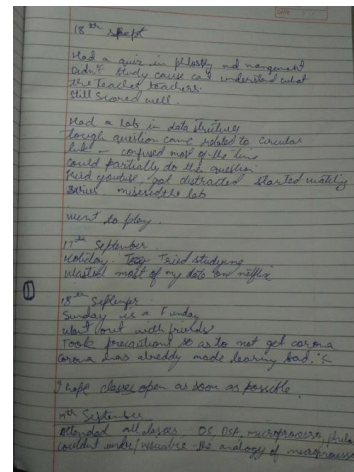 18th sept
Had a quiz in philosphy and management
Didn't study cause can understand what
the teacher teachers.
Still scored well.
Had a lab in data structures
Tough question came related to circular
confused most of the time
could partially do the question.
Tried youtube got distracted started watching
series missed the lab
Went to play.
17th September
Holiday. Tried studying
Wasted most of my data on netflix
18th September
Sunday is a Funday
Went out with friends
Took precautions so as to not get corona
Corona has already made learing bad. :(
I hope classes open as soon as possible.
September
Attended all classes OS, DSA, microprocessor,
couldn't the analogy of microprocessor